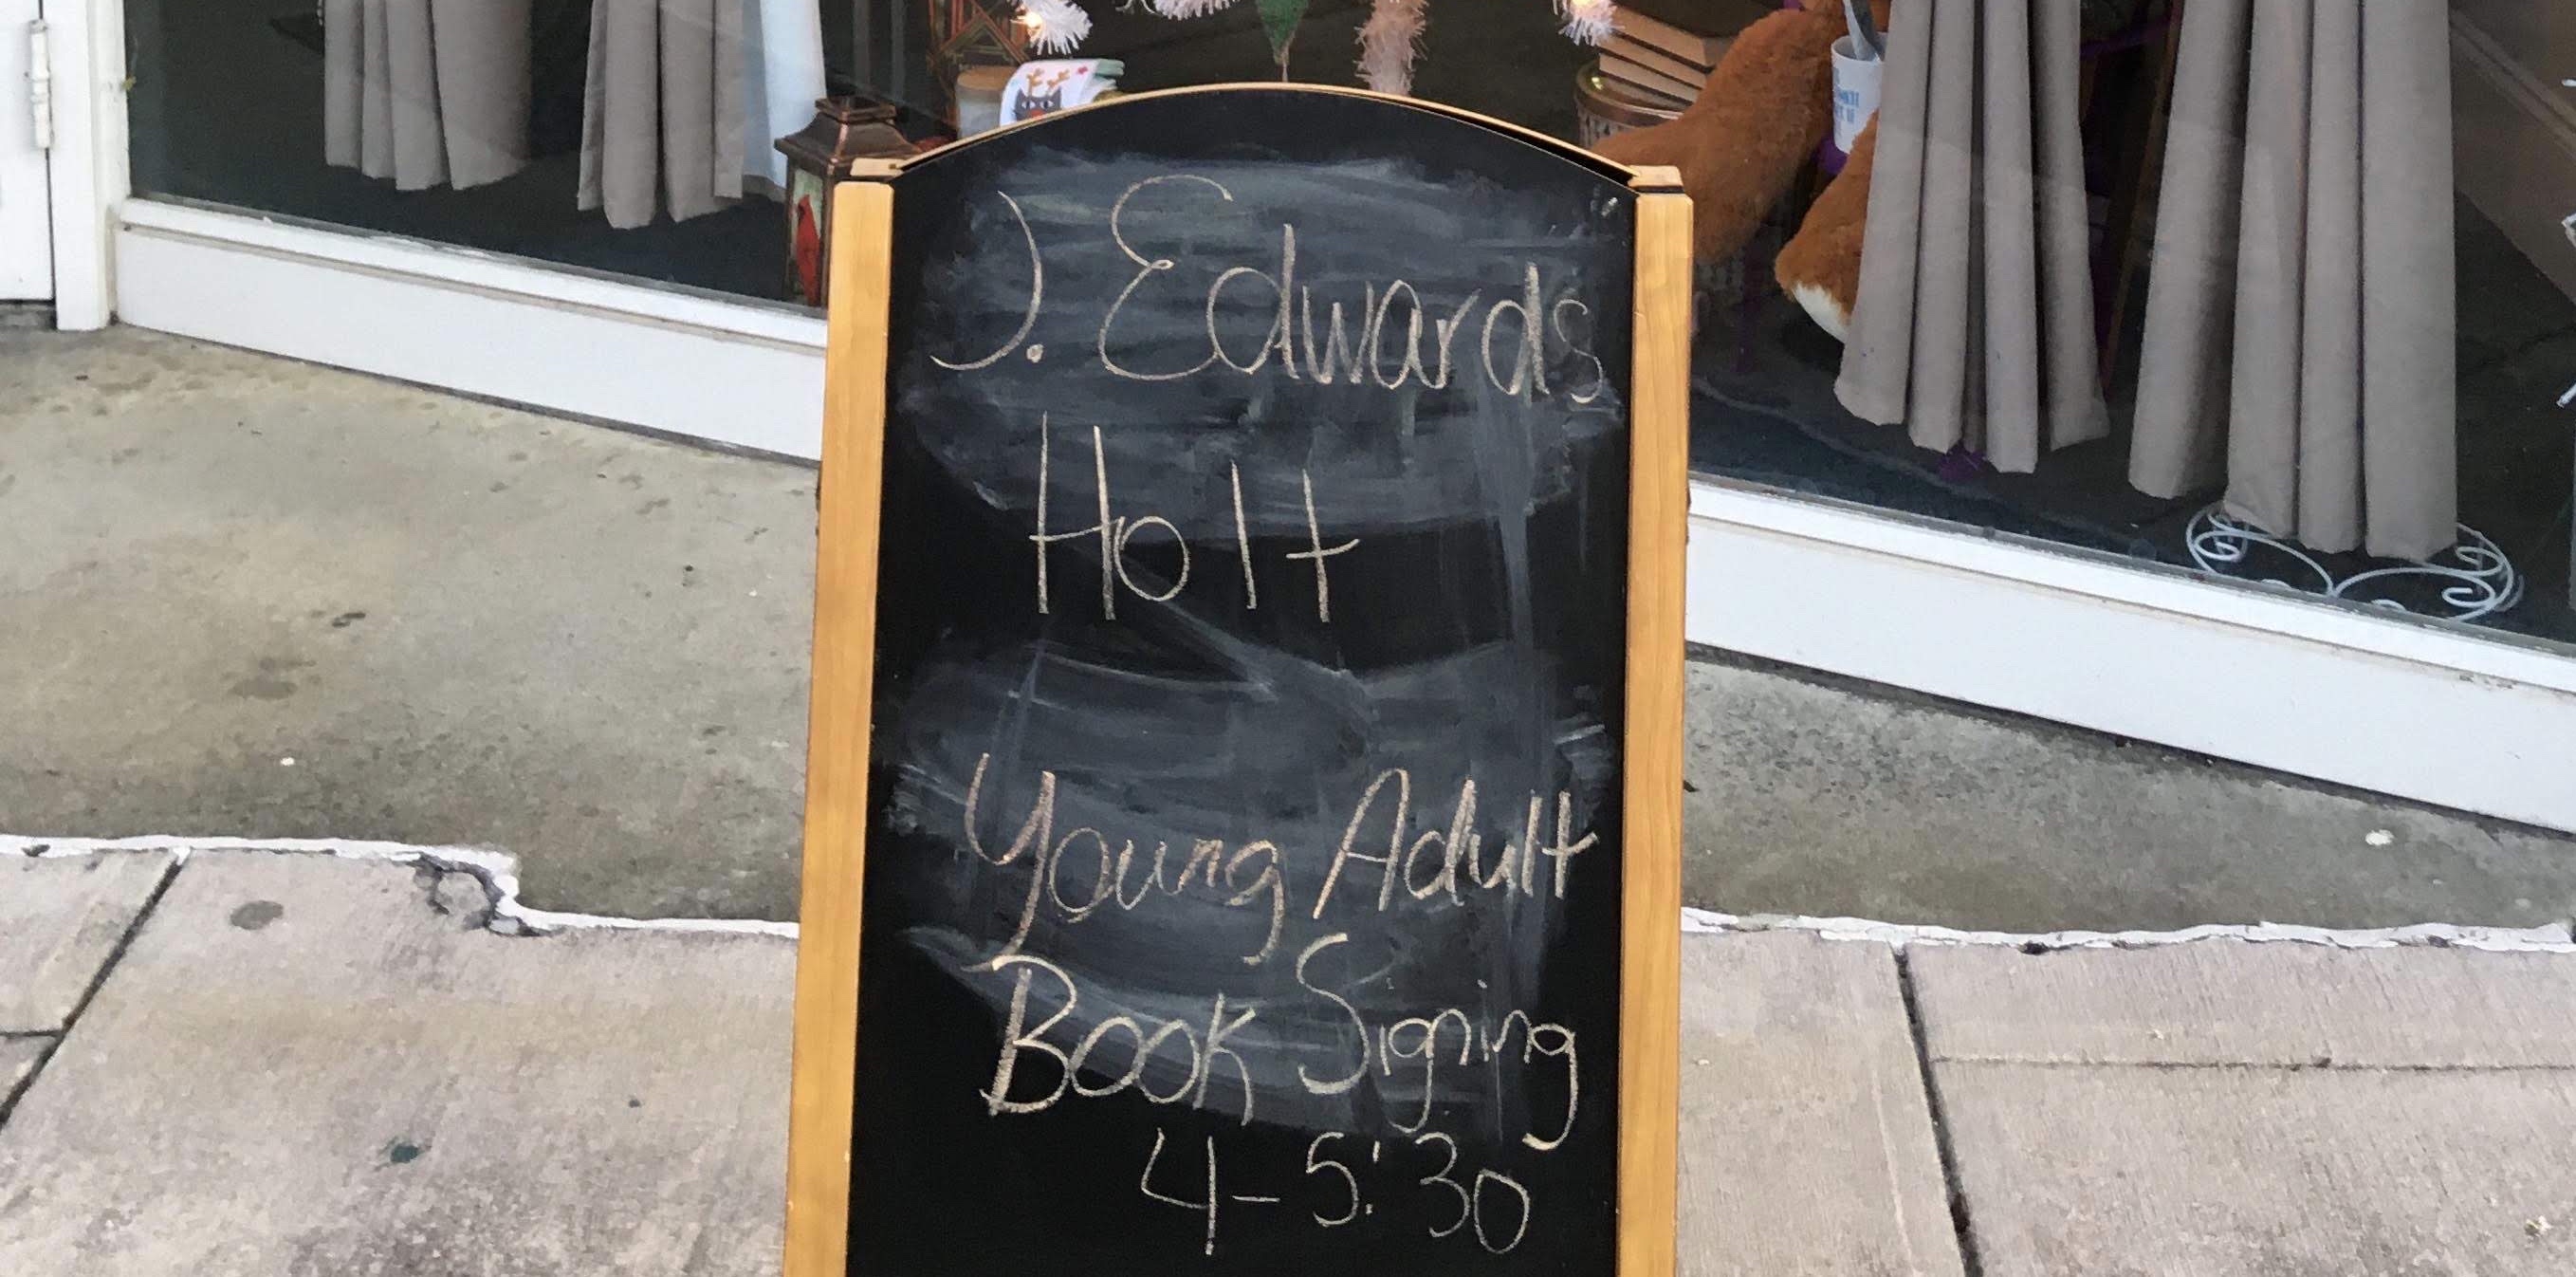 J. Edwards
Holt
Young Adult
Book Signing
4-5:30